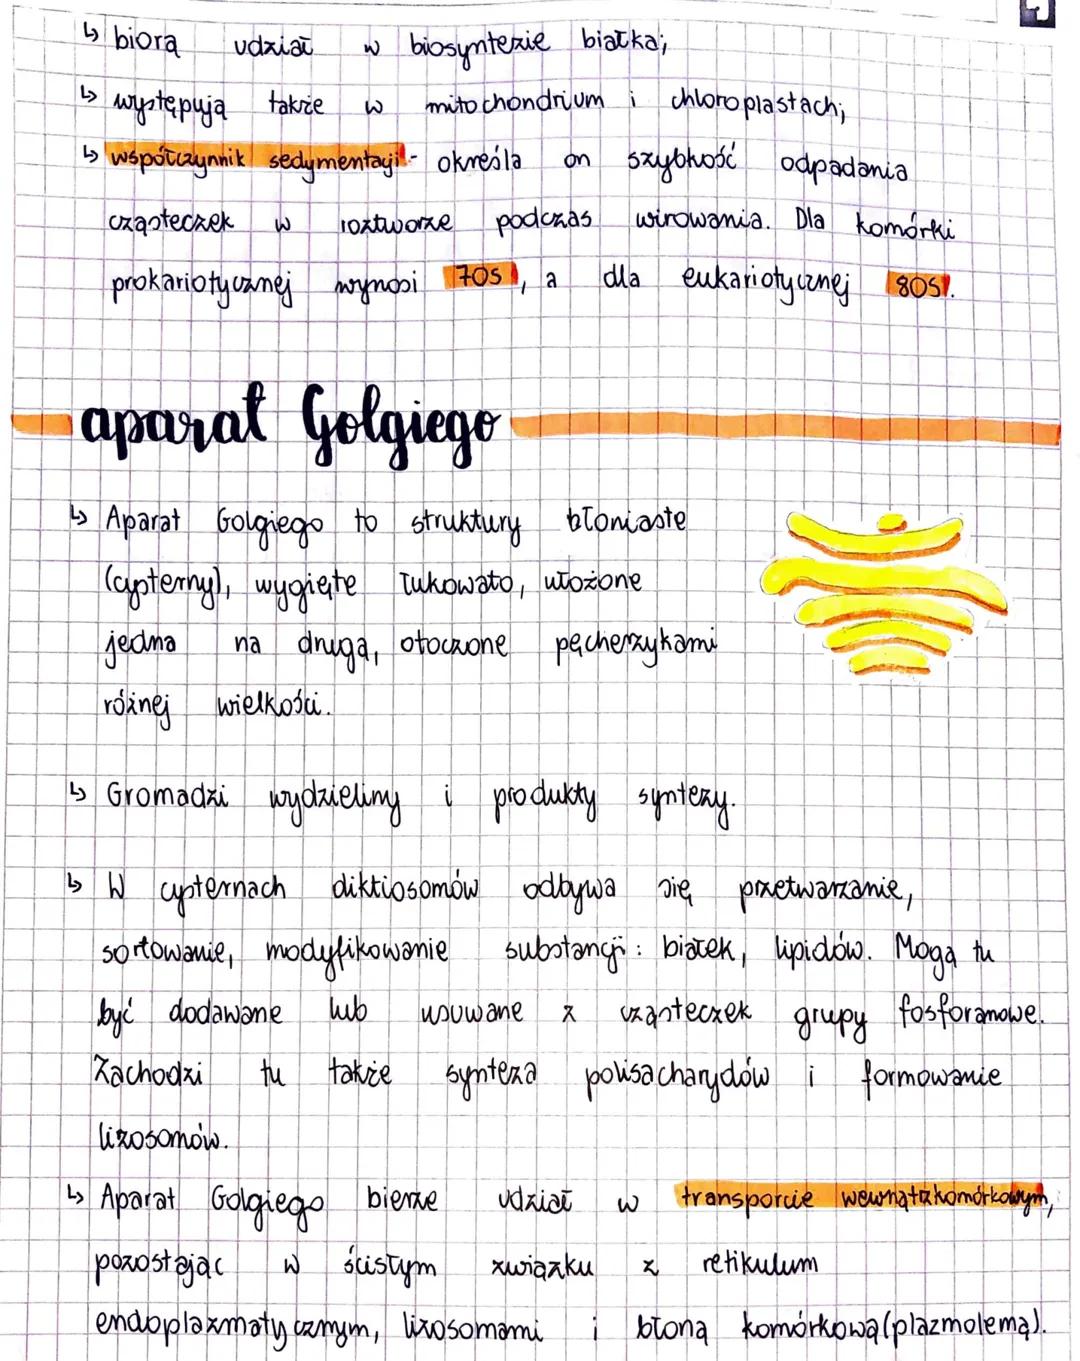 ↳ biorą udział w biosyntezie białka;
↳ występują także w mitochondrium i chloroplastach;
↳ współczynnik sedymentacji - określa on szybkość odpadania
cząsteczek w roztworze podczas wirowania. Dla komórki
prokariotycznej wynosi 70S, a dla eukariotycznej 80S.
aparat Golgiego
↳ Aparat Golgiego to struktury błoniaste
(cysterny), wygięte łukowato, ułożone
jedna na drugą, otoczone pęcherzykami
różnej wielkości.
↳ Gromadzi wydzieliny i produkty syntezy.
↳ W cysternach diktiosomów odbywa się przetwarzanie,
sortowanie, modyfikowanie substancji: białek, lipidów. Mogą tu
być dodawane lub usuwane z cząsteczek grupy fosforanowe.
Zachodzi tu także synteza polisacharydów i formowanie
lizosomów.
↳ Aparat Golgiego bierze udział w transporcie wewnątrzkomórkowym,
pozostając w ścisłym związku z retikulum
endoplazmatycznym, lizosomami i błoną komórkową (plazmolemą).